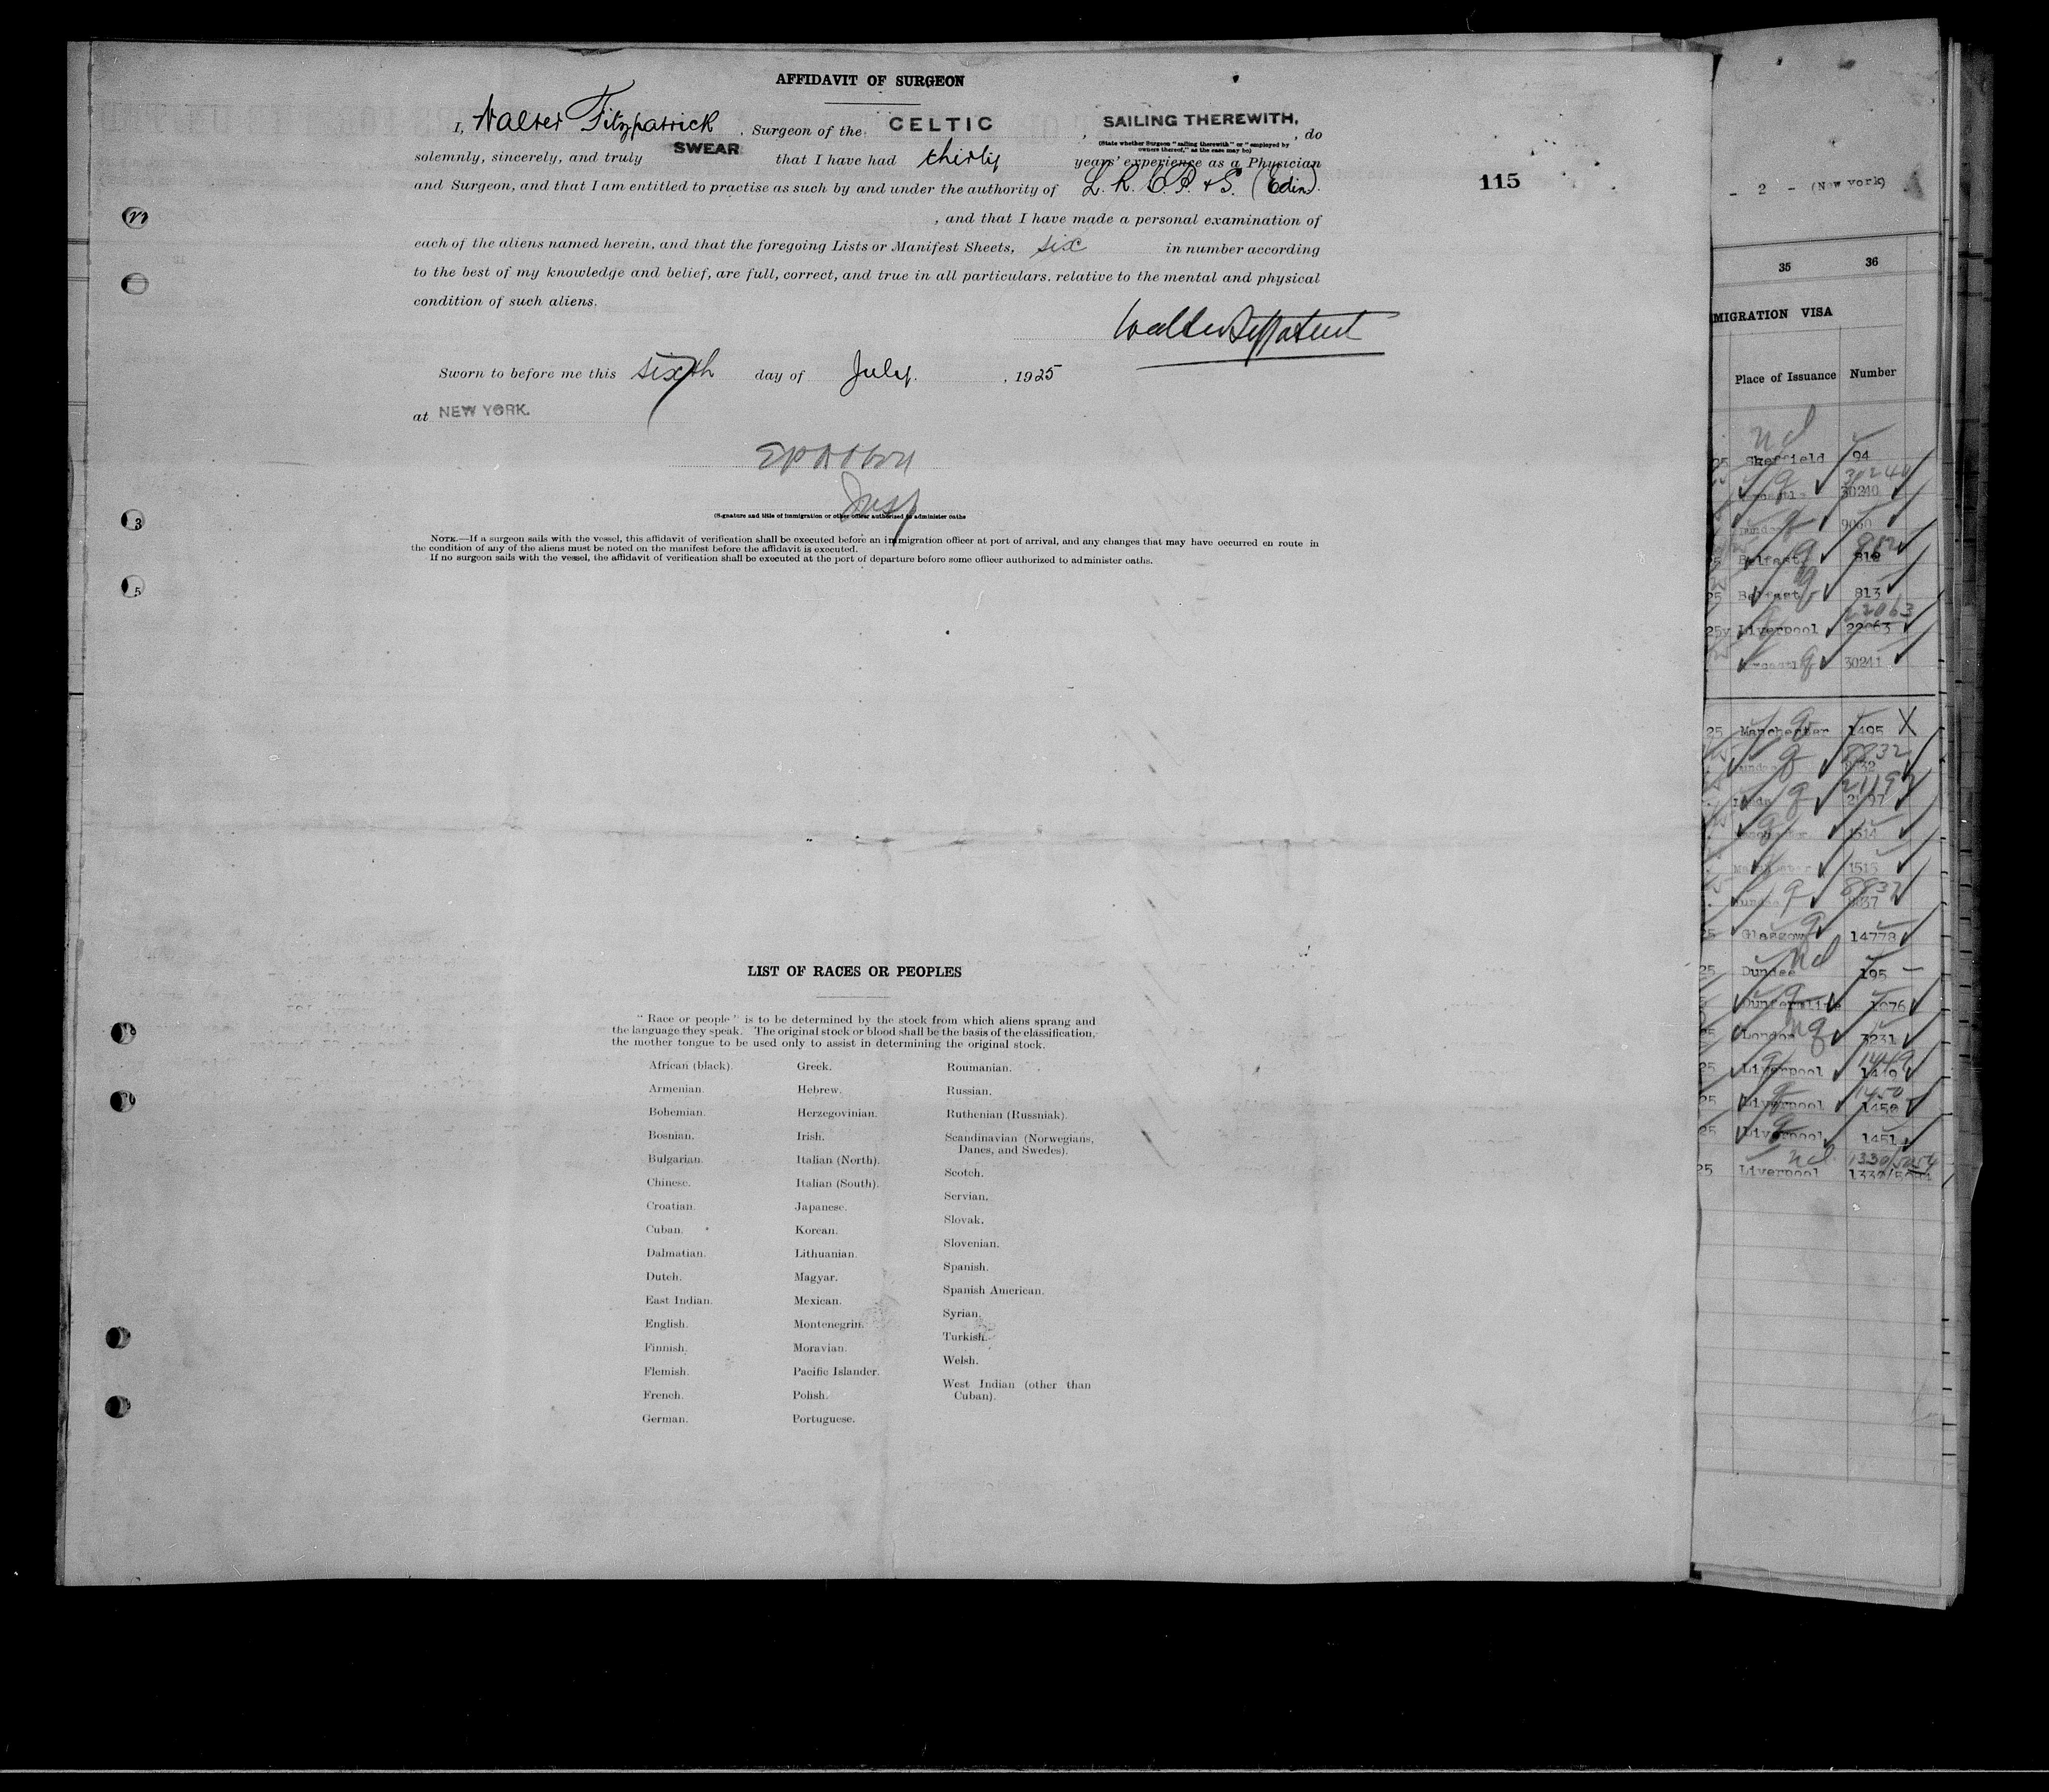 AFFIDAVIT OF SURGEON
I, Walter Fitzpatrick, Surgeon of the CELTIC, SAILING THEREWITH, do
(State whether Surgeon "sailing therewith" or "employed by
owners thereof," as the case may be)
solemnly, sincerely, and truly SWEAR that I have had thirty years' experience as a Physician
and Surgeon, and that I am entitled to practise as such by and under the authority of L. R. C. P. & S. (Edin).
, and that I have made a personal examination of
each of the aliens named herein, and that the foregoing Lists or Manifest Sheets, six in number according
to the best of my knowledge and belief, are full, correct, and true in all particulars, relative to the mental and physical
condition of such aliens.
Sworn to before me this sixth day of July, 1925
at NEW YORK.
Insp
(Signature and title of immigration or other officer authorized to administer oaths
NOTE.—If a surgeon sails with the vessel, this affidavit of verification shall be executed before an immigration officer at port of arrival, and any changes that may have occurred en route in
the condition of any of the aliens must be noted on the manifest before the affidavit is executed.
If no surgeon sails with the vessel, the affidavit of verification shall be executed at the port of departure before some officer authorized to administer oaths.
115
3
5
LIST OF RACES OR PEOPLES
"Race or people" is to be determined by the stock from which aliens sprang and
the language they speak. The original stock or blood shall be the basis of the classification,
the mother tongue to be used only to assist in determining the original stock.
African (black).
Armenian.
Bohemian.
Bosnian.
Bulgarian.
Chinese.
Croatian.
Cuban.
Dalmatian.
Dutch.
East Indian.
English.
Finnish.
Flemish.
French.
German.
Greek.
Hebrew.
Herzegovinian.
Irish.
Italian (North).
Italian (South).
Japanese.
Korean.
Lithuanian.
Magyar.
Mexican.
Montenegrin.
Moravian.
Pacific Islander.
Polish.
Portuguese.
Roumanian.
Russian.
Ruthenian (Russniak).
Scandinavian (Norwegians,
Danes, and Swedes).
Scotch.
Servian.
Slovak.
Slovenian.
Spanish.
Spanish American.
Syrian.
Turkish.
Welsh.
West Indian (other than
Cuban).
- 2 - (New York)
35 36
MIGRATION VISA
Place of Issuance Number
nd
25 Sheffield 94
30240
30240
9060
25 Belfast
25 Belfast 813
22063
25 Liverpool 22063
30241
25 Manchester 1495 X
8832
21197
1514
1515
25 Glasgow 14778
nd
25 Dundee 195
Dunfermline 1076
25 London 3231
1449
25 Liverpool 1449
1450
25 Liverpool 1450
25 Liverpool 1451
nd
25 Liverpool